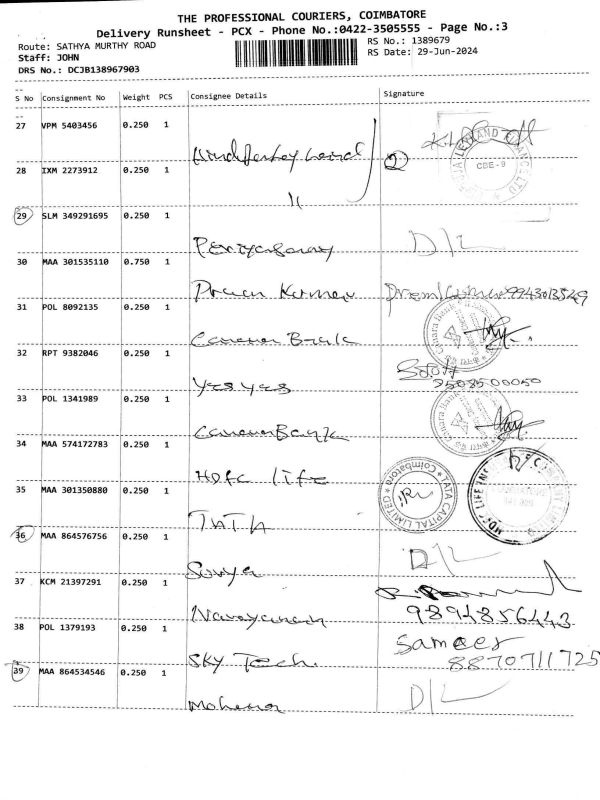 THE PROFESSIONAL COURIERS, COIMBATORE
Delivery Runsheet - PCX - Phone No.:0422-3505555 - Page No.:3
Route: SATHYA MURTHY ROAD
RS No.: 1389679
Staff: JOHN
RS Date: 29-Jun-2024
DRS No.: DCJB138967903
S No Consignment No Weight PCS Consignee Details Signature
27 VPM 5403456 0.250 1
CBE-9
28 IXM 2273912 0.250 1
2
"
29 SLM 349291695 0.250 1
D/L
30 MAA 301535110 0.750 1
Kumar 9943013549
31 POL 8092135 0.250 1
Canara Bank
Canara Bank
32 RPT 9382046 0.250 1
Yes yes
95085 00050
33 POL 1341989 0.250 1
Canara Bank
Canara Bank
34 MAA 574172783 0.250 1
Hdfc life
HDFC LIFE
35 MAA 301350880 0.250 1
TATA
TATA CAPITAL LIMITED * Coimbatore *
36 MAA 864576756 0.250 1
Surya D/L
37 KCM 21397291 0.250 1
Narayanan 9894856443
38 POL 1379193 0.250 1
Sameer
SKY Tech. 8870711725
39 MAA 864534546 0.250 1
D/L